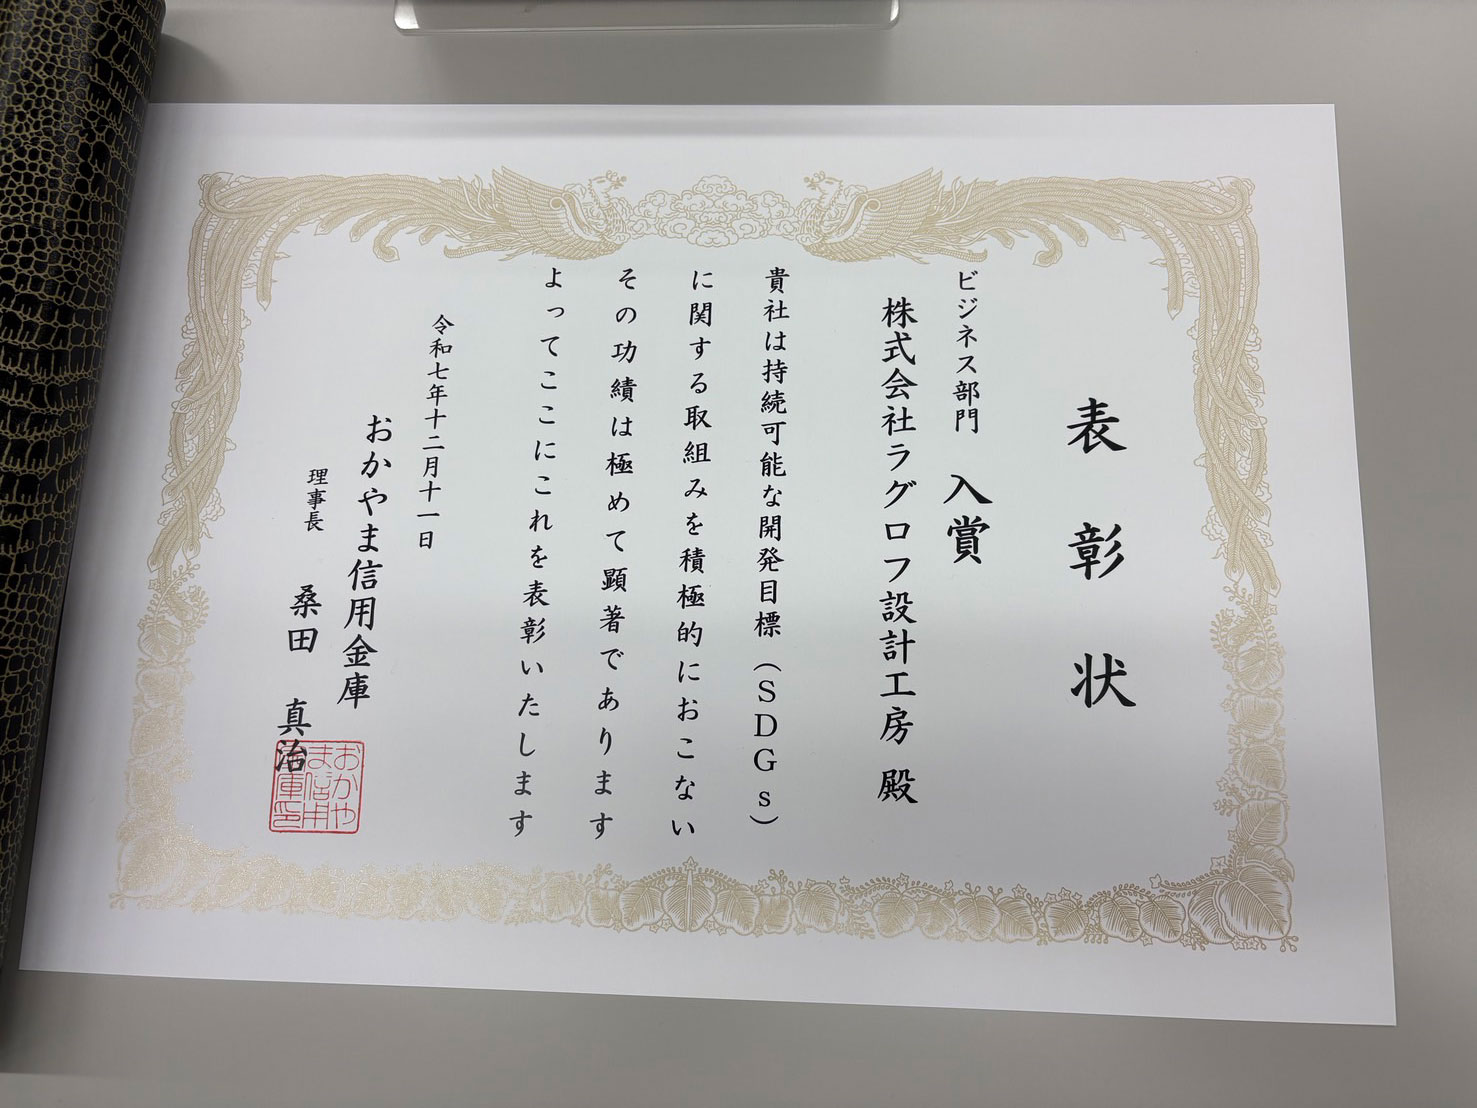 表彰状
ビジネス部門 入賞
株式会社ラグロフ設計工房 殿
貴社は持続可能な開発目標（SDGs）
に関する取組みを積極的におこない
その功績は極めて顕著であります
よってここにこれを表彰いたします
令和七年十二月十一日
おかやま信用金庫
理事長 桑田 真治
おかや
ま信用
金庫印